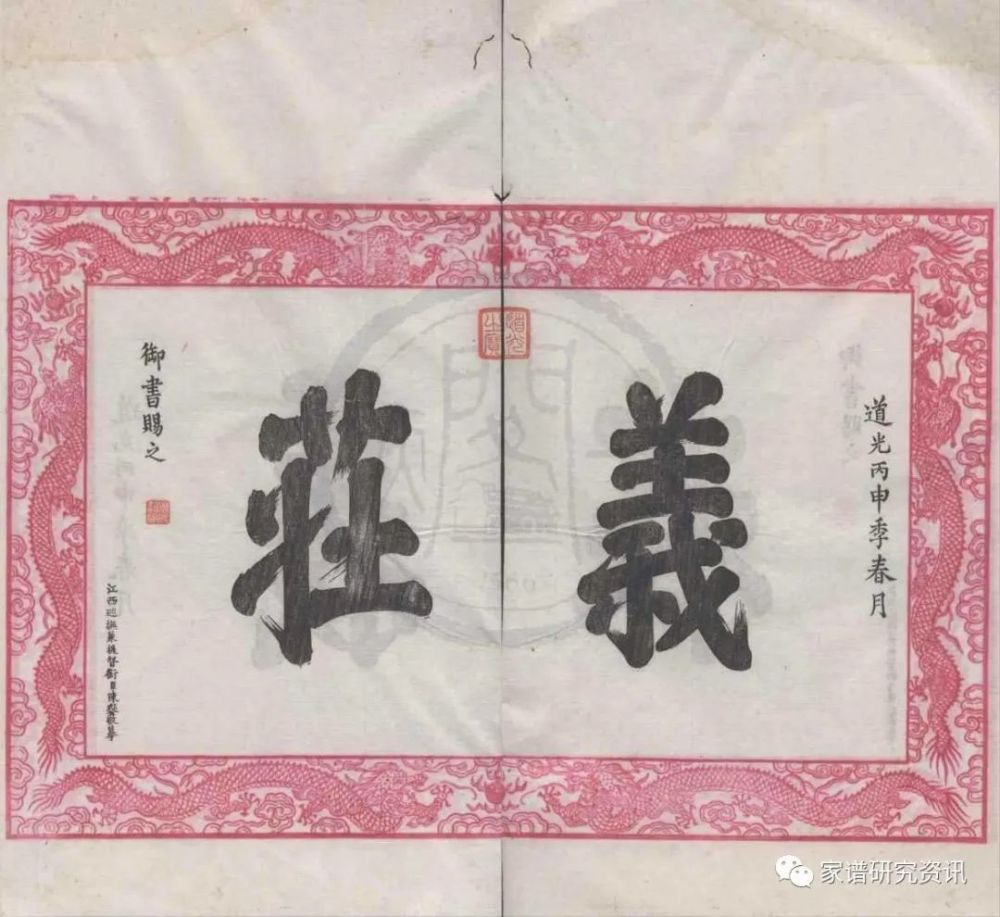 道光丙申季春月
義莊
道光之寶
御書賜之
江西巡撫兼提督銜臣陳鑾敬摹
家谱研究资讯